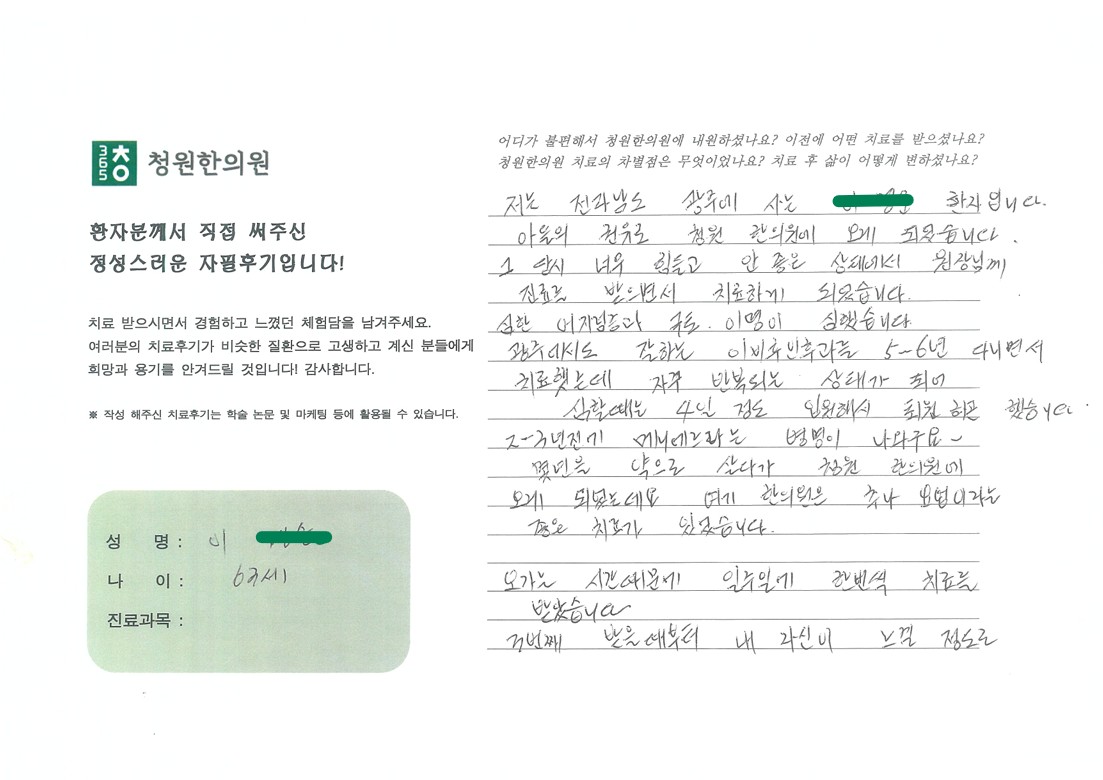 365 청
청원한의원
환자분께서 직접 써주신
정성스러운 자필후기입니다!
치료 받으시면서 경험하고 느꼈던 체험담을 남겨주세요.
여러분의 치료후기가 비슷한 질환으로 고생하고 계신 분들에게
희망과 용기를 안겨드릴 것입니다! 감사합니다.
※ 작성 해주신 치료후기는 학술 논문 및 마케팅 등에 활용될 수 있습니다.
성 명 : 이
나 이 : 세
진료과목 :
어디가 불편해서 청원한의원에 내원하셨나요? 이전에 어떤 치료를 받으셨나요?
청원한의원 치료의 차별점은 무엇이었나요? 치료 후 삶이 어떻게 변하셨나요?
저는 전라남도 광주에 사는 환자입니다.
아들의 권유로 청원 한의원에 오게 되었습니다.
그 당시 너무 힘들고 안 좋은 상태에서 원장님께
진료를 받으면서 치료하게 되었습니다.
심한 어지럼증과 구토. 이명이 심했습니다.
광주에서도 잘하는 이비후인후과를 5~6년 다니면서
치료했는데 자주 반복되는 상태가 되어
심할때는 4일 정도 입원해서 퇴원 했습니다.
2-3년전에 메니에르라는 병명이 나와구요~
몇년을 약으로 살다가 청원 한의원에
오게 되었는데요 여기 한의원은 추나 요법이라는
좋은 치료가 있었습니다.
오가는 시간때문에 일주일에 한번씩 치료를
받았습니다
두번째 받을때부터 내 자신이 느낄 정도로